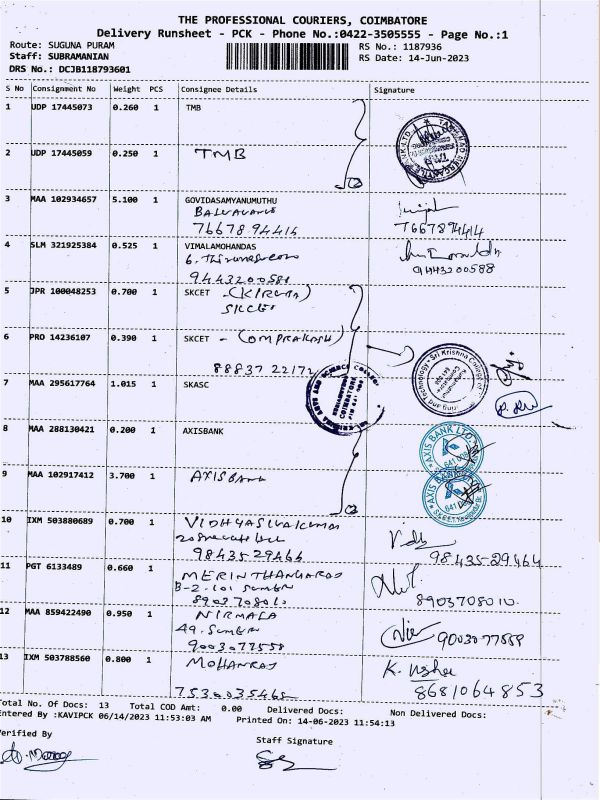 THE PROFESSIONAL COURIERS, COIMBATORE
Delivery Runsheet - PCK - Phone No.:0422-3505555 - Page No.:1
Route: SUGUNA PURAM RS No.: 1187936
Staff: SUBRAMANIAN RS Date: 14-Jun-2023
DRS No.: DCJB118793601
S No Consignment No Weight PCS Consignee Details Signature
1 UDP 17445073 0.260 1 TMB
2 UDP 17445059 0.250 1 TMB
3 MAA 102934657 5.100 1 GOVIDASAMYANUMUTHU
76678 94414 7667894414
4 SLM 321925384 0.525 1 VIMALAMOHANDAS
9443200588 9443200588
5 JPR 100048253 0.700 1 SKCET
SKCET
6 PRO 14236107 0.390 1 SKCET - (OMPRAKASH)
88837 22172
7 MAA 295617764 1.015 1 SKASC
8 MAA 288130421 0.200 1 AXISBANK
AXIS BANK LTD.
9 MAA 102917412 3.700 1 AXISBANK
AXIS BANK
10 IXM 503880689 0.700 1 VIDHYASIVAKUMAR
98435-29464 98435-29464
11 PGT 6133489 0.660 1 MERINTHANGARAJ
B-2.101
8903708010 8903708010
12 MAA 859422490 0.950 1 NIRMALA
49.
9003077559 9003077559
13 IXM 503788560 0.800 1 MOHANRAJ K. Usha
7530035468 8681064853
Total No. Of Docs: 13 Total COD Amt: 0.00 Delivered Docs: Non Delivered Docs:
Entered By :KAVIPCK 06/14/2023 11:53:03 AM Printed On: 14-06-2023 11:54:13
Verified By Staff Signature